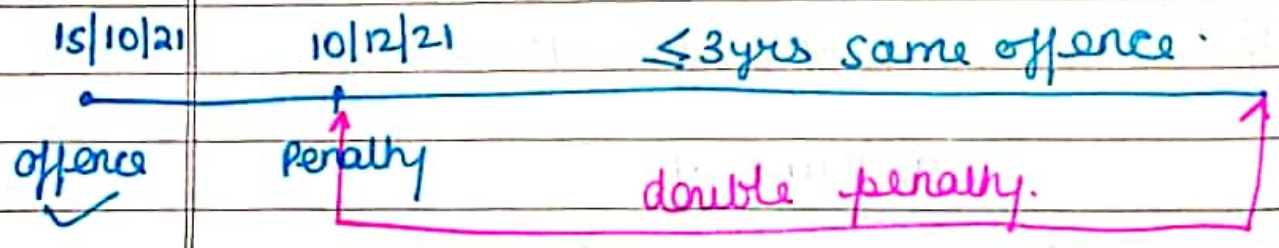 15/10/21 10/12/21 ≤3yrs same offence.
offence Penalty
double penalty.